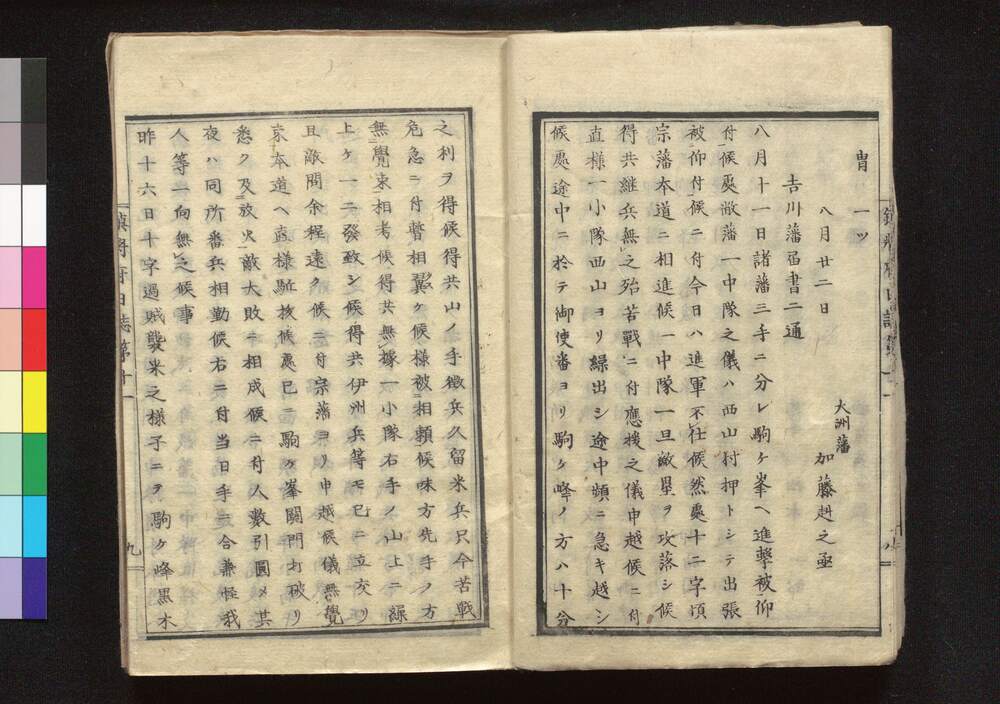 冑　一ツ
八月廿二日
大洲藩　加藤赳之亟
吉川藩届書二通
八月十一日諸藩三手ニ分レ駒ケ峯ヘ進撃被仰
付候処敝藩一中隊之儀ハ西山村押トシテ出張
被仰付候ニ付今日ハ進軍不仕候然処十二字頃
宗藩本道ニ相進候一中隊一旦敵塁ヲ攻落シ候
得共継兵無之殆苦戦ニ付應援之儀申越候ニ付
直様一小隊西山ヨリ繰出シ途中頻ニ急キ越シ
候処途中ニ於テ御使番ヨリ駒ケ峰ノ方ハ十分
之利ヲ得候得共山ノ手徴兵久留米兵只今苦戦
危急ニ付暫相翼ケ候様被相頼候味方先手ノ方
無覺束相考候得共無據一小隊右手ノ山上ニ繰
上ケ一二發致シ候得共伊州兵等モ已ニ立交リ
且敵間余程遠ク候ニ付宗藩ヨリ申越候儀無覺
束本道ヘ直様駈抜候處已ニ駒ケ峯關門打破リ
悉ク及放火敵大敗ニ相成候ニ付人數引圓メ其
夜ハ同所番兵相勤候右ニ付当日手ニ合兼怪我
人等一向無之候事
昨十六日十字過賊襲来之様子ニテ駒ケ峰黒木
鎮将府日誌第十一
九